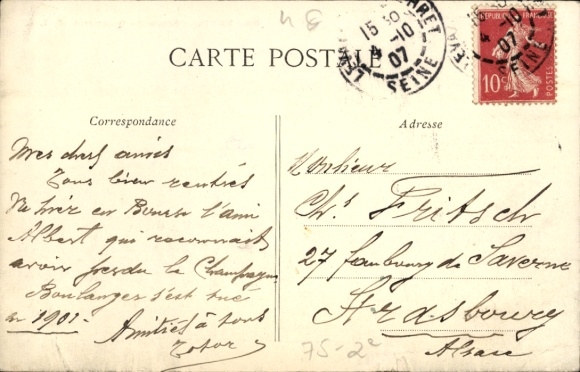 48
LEVALLOIS-PERRET
15 30
4-10
07
SEINE
REPUBLIQUE FRANÇAISE
10c
07
SEINE
CARTE POSTALE
Correspondance
Mes chers amis
Tous bien rentrés
en Bourse l'ami
Albert qui reconnait
avoir perdu le Champagne
Boulanger s'est tué
en 1901-
Amitiés à tous
Totor
Adresse
Monsieur
Chs Fritsch
27 faubourg de Saverne
Strasbourg
Alsace
75-2e